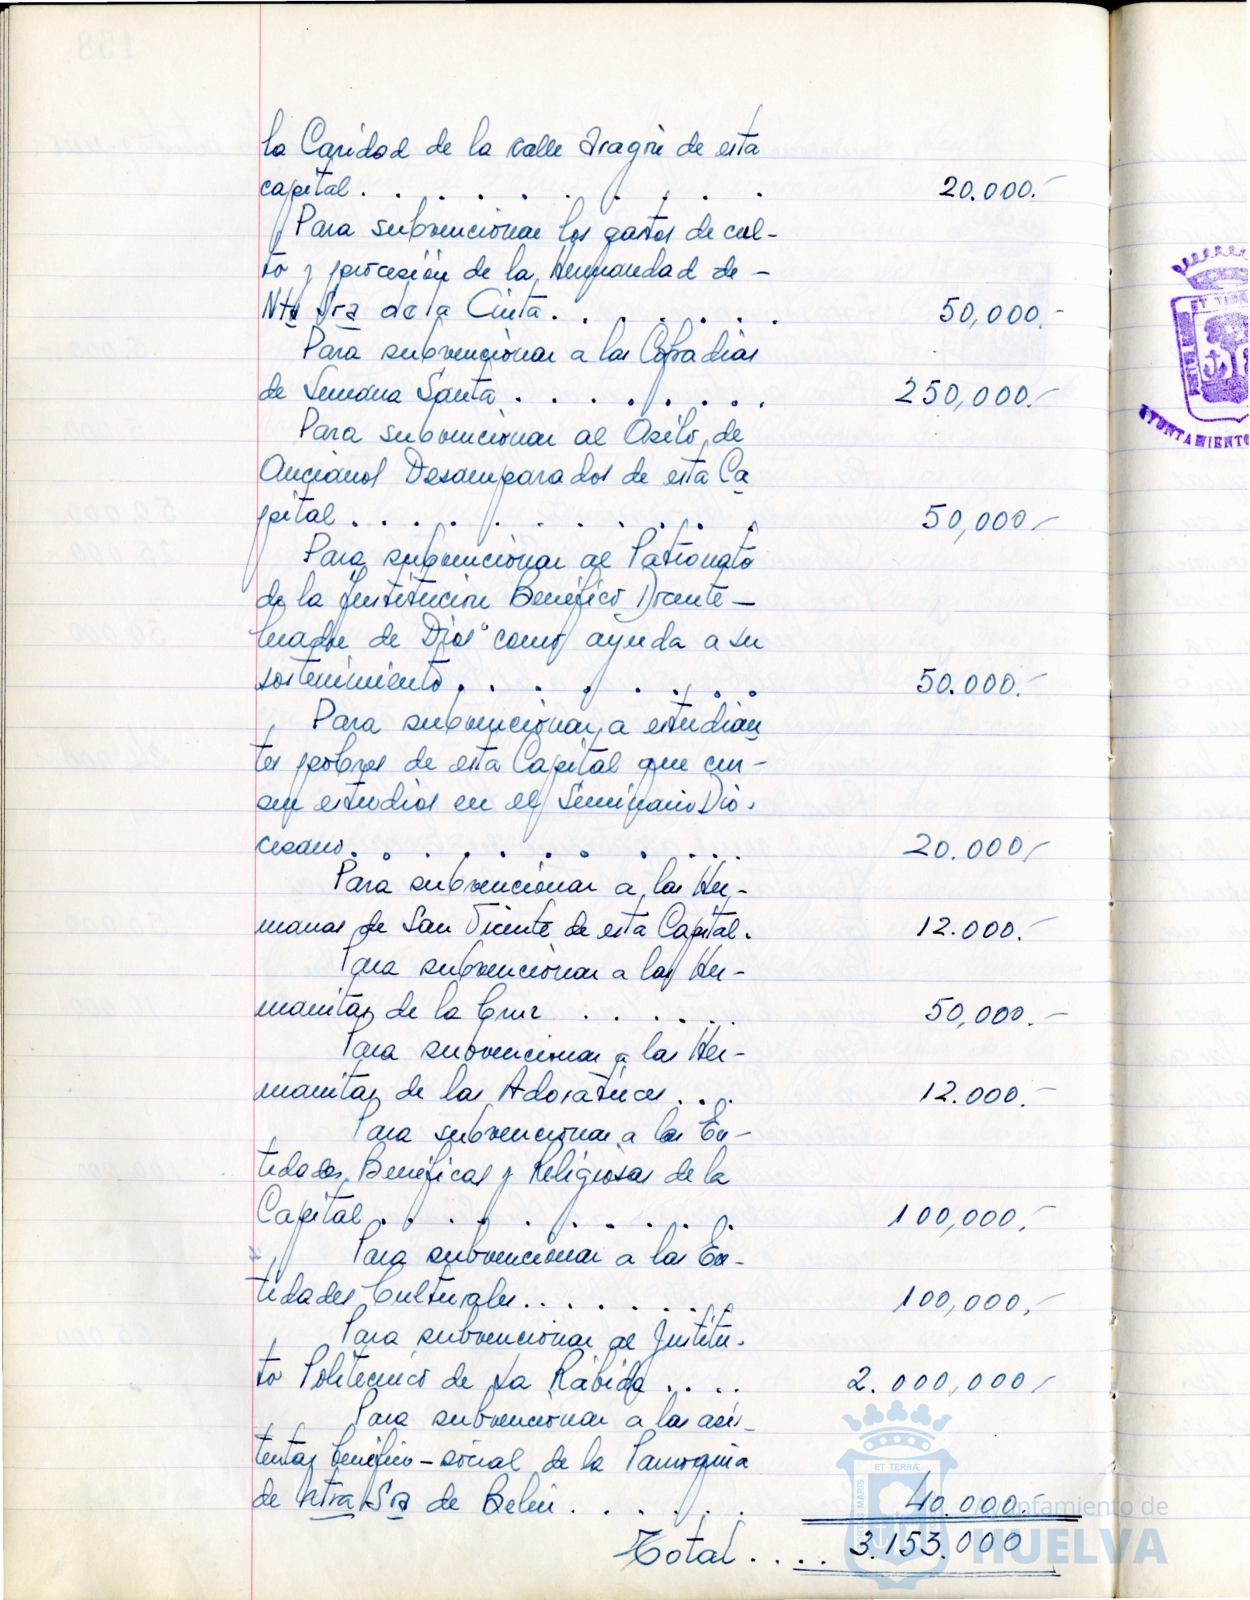 la Caridad de la calle Aragón de esta
capital . . . . . . . . . . 20.000.-
Para subvencionar los gastos de cul-
to y procesión de la Hermandad de -
Ntra Sra de la Cinta. . . . . . . 50,000.-
Para subvencionar a las Cofradias
de Semana Santa . . . . . . . . 250,000.-
Para subvencionar al Asilo de
Ancianos Desamparados de esta Ca
pital . . . . . . . . . . . 50,000.-
Para subvencionar al Patronato
de la Institución Benéfico Docente -
de Dios" como ayuda a su
sostenimiento . . . . . . . . 50.000.-
Para subvencionar a estudian
tes pobres de esta Capital que cur-
an estudios en el Seminario Dio.
cesano. . . . . . . . . . . 20.000.-
Para subvencionar a las Her-
manas de San Vicente de esta Capital. 12.000.-
Para subvencionar a las Her-
manitas de la Cruz . . . . . . 50,000.-
Para subvencionar a las Her-
manitas de las Adoratrices . . . 12.000.-
Para subvencionar a las En-
tidades Benéficas y Religiosas de la
Capital . . . . . . . . . . 100,000.-
Para subvencionar a las En-
tidades Culturales . . . . . . . 100,000.-
Para subvencionar al Institu-
to Politecnico de La Rábida . . . . 2.000,000.-
Para subvencionar a las asis-
tentas benéfico-social de la Parroquia
de Ntra Sra de Belén . . . . . . 40.000.-
Total . . . . 3.153.000
AYUNTAMIENTO
ET TERRÆ
Ayuntamiento de
HUELVA